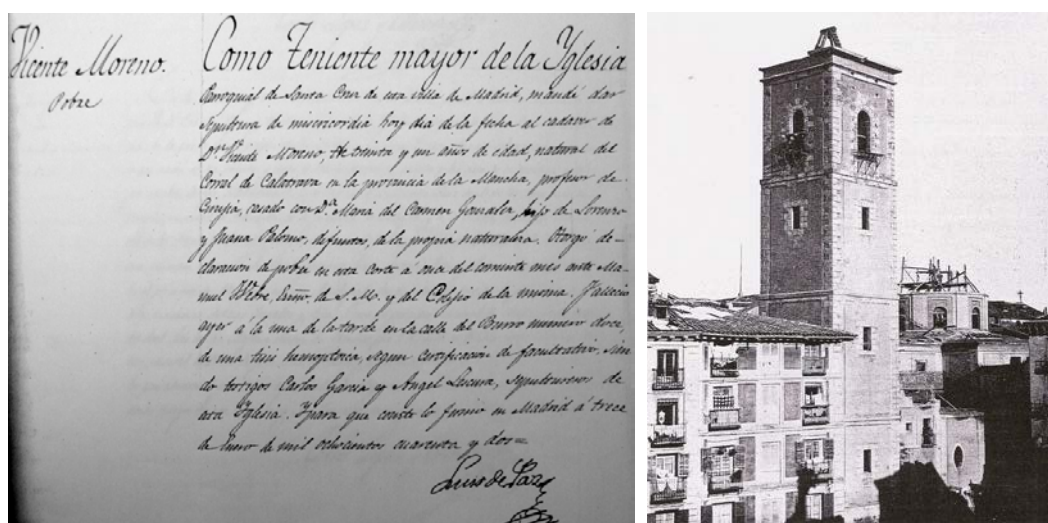 Vicente Moreno.
Pobre
Como Teniente mayor de la Yglesia
Parroquial de Santa Cruz de esta villa de Madrid, mandé dar
sepultura de misericordia hoy dia de la fecha al cadaver de
Dn. Vicente Moreno, de treinta y un años de edad, natural del
Corral de Calatrava en la provincia de la Mancha, profesor de
Cirujia, casado con Da. Maria del Carmen Gonzalez, hijo de Lorenzo
y Juana Palomo, difuntos, de la propia naturaleza. Otorgó de=
claracion de pobre en esta Corte á once del corriente mes ante Ma
nuel Esno. de S. M. y del Colejio de la misma. Fallecio
ayer á la una de la tarde en la calle del Burro numero doce,
de una tisis hemoptoica, segun certificacion de facultativo, sien
do testigos Carlos Garcia y Angel sepultureros de
esta Yglesia. Y para que conste lo firmo en Madrid á trece
de Enero de mil ochocientos cuarenta y dos=
Luis de Paz